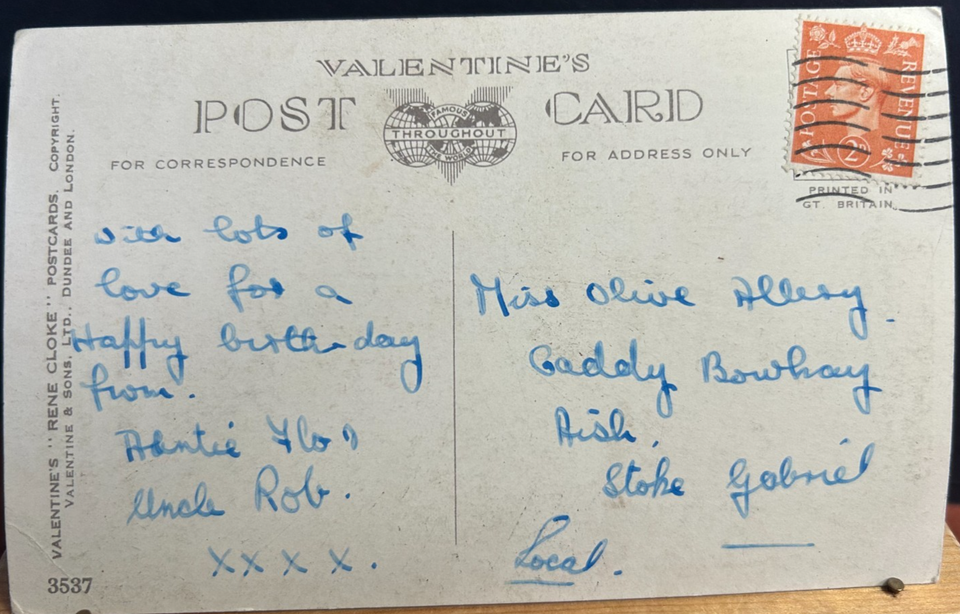 VALENTINE'S
POST CARD
FAMOUS
THROUGHOUT
THE WORLD
FOR CORRESPONDENCE
FOR ADDRESS ONLY
POSTAGE
REVENUE
2D
PRINTED IN
GT. BRITAIN
VALENTINE'S "RENE CLOKE" POSTCARDS. COPYRIGHT.
VALENTINE & SONS, LTD., DUNDEE AND LONDON.
With lots of
love for a
Happy birth-day
from.
Auntie Flo &
Uncle Rob.
x x x x.
Miss Olive Allery.
Caddy Bowhay
Aish.
Stoke Gabriel
Local.
3537